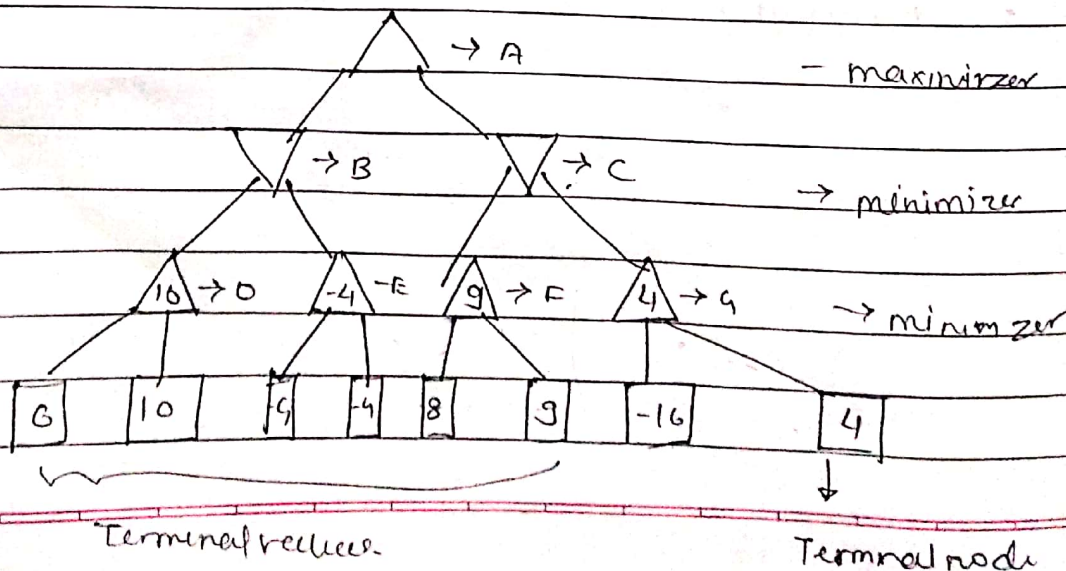 → A
- maxinirzer
→ B
→ C
→ minimizer
10 → D
-4 -E
9 → F
4 → G
→ minimzer
6
10
-4
8
9
-16
4
Terminal
Termnal node